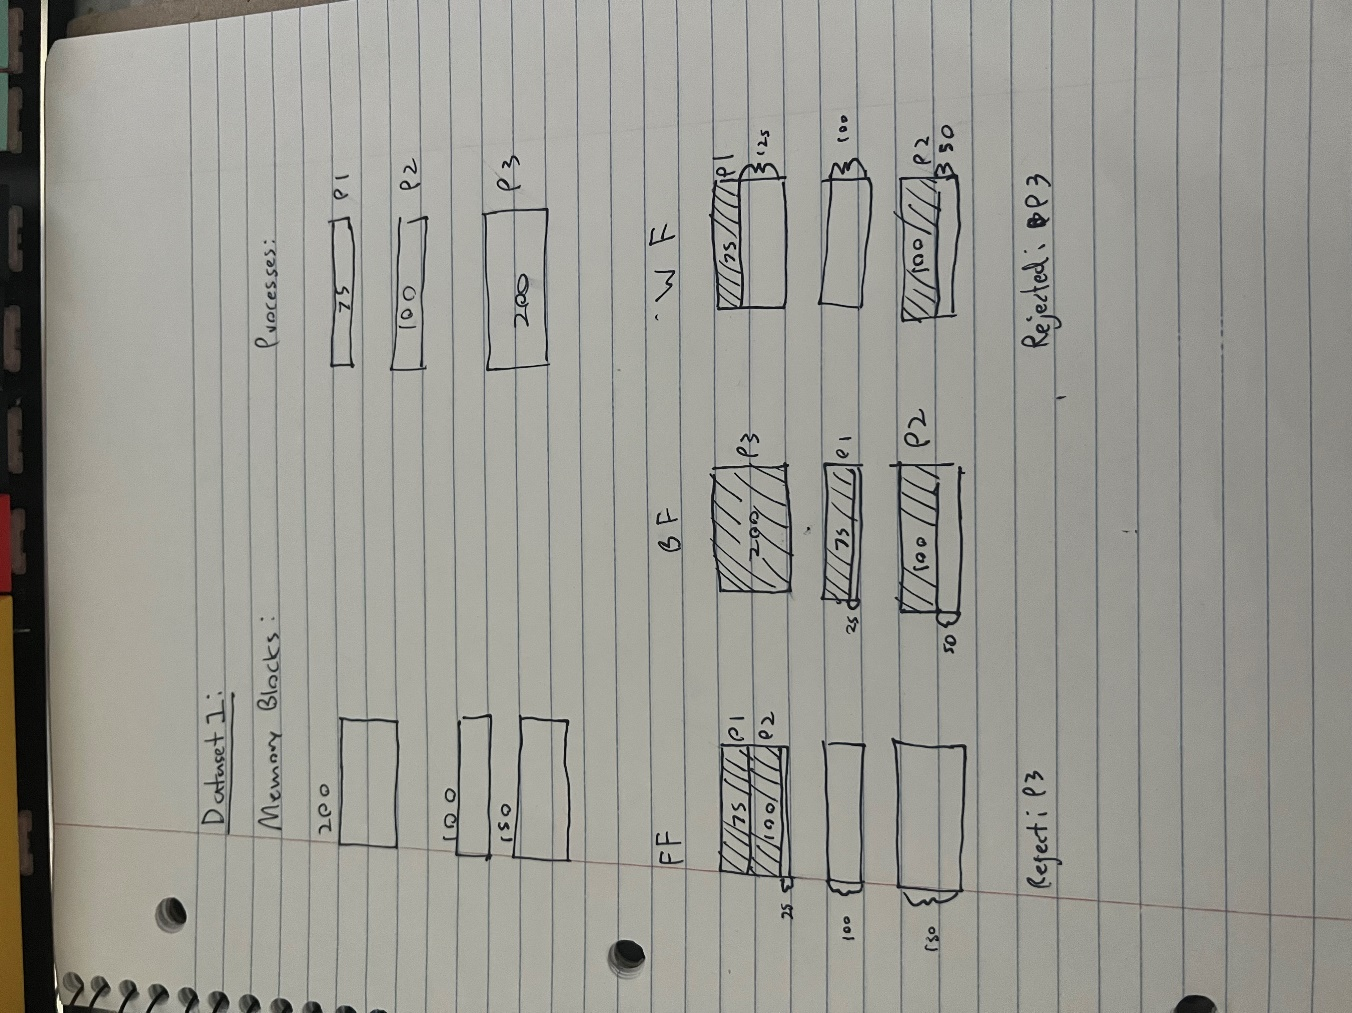 Dataset 1:
Memory Blocks:
Processes:
200
100
150
75 P1
100 P2
200 P3
FF
75 P1
100 P2
25
100
150
Reject: P3
BF
200 P3
75 P1
25
100 P2
50
WF
75 P1
125
100
100 P2
50
Rejected: P3